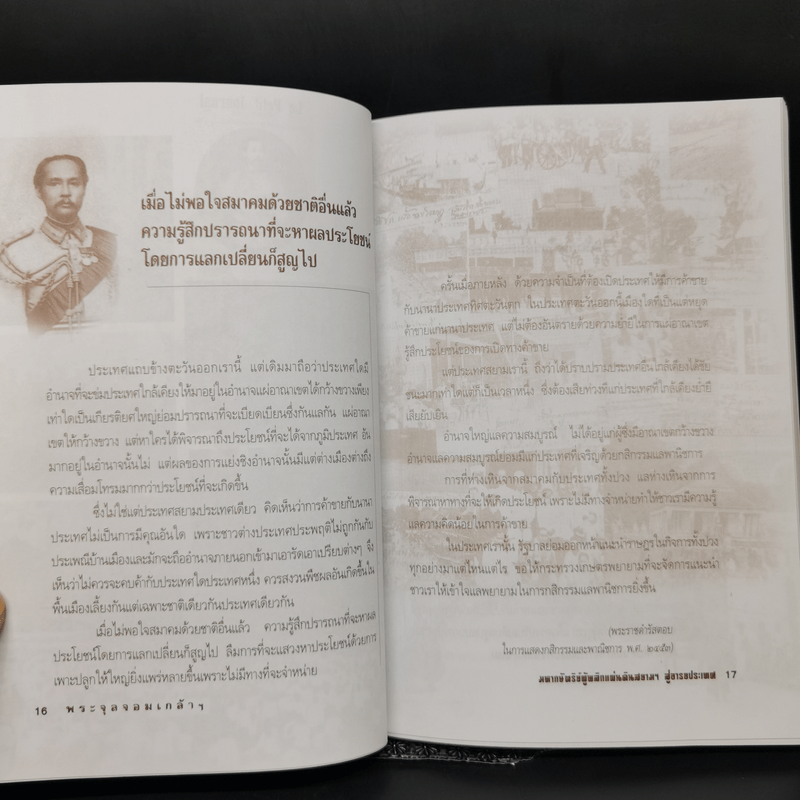 เมื่อไม่พอใจสมาคมด้วยชาติอื่นแล้ว
ความรู้สึกปรารถนาที่จะหาผลประโยชน์
โดยการแลกเปลี่ยนก็สูญไป
ประเทศแถบข้างตะวันออกเรานี้ แต่เดิมมาถือว่าประเทศใดมี
อำนาจที่จะข่มประเทศใกล้เคียงให้มาอยู่ในอำนาจแผ่อาณาเขตได้กว้างขวางเพียง
เท่าใดเป็นเกียรติยศใหญ่ย่อมปรารถนาที่จะเบียดเบียนซึ่งกันแลกัน แผ่อาณา
เขตให้กว้างขวาง แต่หาใครได้พิจารณาถึงประโยชน์ที่จะได้จากภูมิประเทศ อัน
มากอยู่ในอำนาจนั้นไม่ แต่ผลของการแย่งชิงอำนาจนั้นมีแต่ต่างเมืองต่างถึง
ความเสื่อมโทรมมากกว่าประโยชน์ที่จะเกิดขึ้น
ซึ่งไม่ใช่แต่ประเทศสยามประเทศเดียว คิดเห็นว่าการค้าขายกับนานา
ประเทศไม่เป็นการมีคุณอันใด เพราะชาวต่างประเทศประพฤติไม่ถูกกันกับ
ประเพณีบ้านเมืองและมักจะถืออำนาจภายนอกเข้ามาเอารัดเอาเปรียบต่างๆ จึง
เห็นว่าไม่ควรจะคบค้ากับประเทศใดประเทศหนึ่ง ควรสงวนพืชผลอันเกิดขึ้นใน
พื้นเมืองเลี้ยงกันแต่เฉพาะชาติเดียวกันประเทศเดียวกัน
เมื่อไม่พอใจสมาคมด้วยชาติอื่นแล้ว ความรู้สึกปรารถนาที่จะหาผล
ประโยชน์โดยการแลกเปลี่ยนก็สูญไป ลืมการที่จะแสวงหาประโยชน์ด้วยการ
เพาะปลูกให้ใหญ่ยิ่งแพร่หลายขึ้นเพราะไม่มีทางที่จะจำหน่าย
16 พระจุลจอมเกล้าฯ
ครั้นเมื่อภายหลัง ด้วยความจำเป็นที่ต้องเปิดประเทศให้มีการค้าขาย
กับนานาประเทศทิศตะวันตก ในประเทศตะวันออกนี้เมืองใดที่เป็นแต่หยุด
ค้าขายแก่นานาประเทศ แต่ไม่ต้องอันตรายด้วยความย่ำยีในการแผ่อาณาเขต
รู้สึกประโยชน์ของการเปิดทางค้าขาย
แต่ประเทศสยามเรานี้ ถึงว่าได้ปราบปรามประเทศอื่นใกล้เคียงได้ชัย
ชนะมากเท่าใดแต่ก็เป็นเวลาหนึ่ง ซึ่งต้องเสียท่วงทีแก่ประเทศที่ใกล้เคียงย่ำยี
เสียยับเยิน
อำนาจใหญ่แลความสมบูรณ์ ไม่ได้อยู่แก่ผู้ซึ่งมีอาณาเขตกว้างขวาง
อำนาจแลความสมบูรณ์ย่อมมีแก่ประเทศที่เจริญด้วยกสิกรรมแลพานิชการ
การที่ห่างเหินจากสมาคมกับประเทศทั้งปวง แลห่างเหินจากการ
พิจารณาหาทางที่จะให้เกิดประโยชน์ เพราะไม่มีทางจำหน่ายทำให้ชาวเรามีความรู้
แลความคิดน้อยในการค้าขาย
ในประเทศเรานั้น รัฐบาลย่อมออกหน้าแนะนำราษฎรในกิจการทั้งปวง
ทุกอย่างมาแต่ไหนแต่ไร ขอให้กระทรวงเกษตรพยายามที่จะจัดการแนะนำ
ชาวเราให้เข้าใจแลพยายามในการกสิกรรมแลพานิชการยิ่งขึ้น
(พระราชดำรัสตอบ
ในการแสดงกสิกรรมและพาณิชการ พ.ศ. ๒๔๕๓)
มหากษัตริย์ผู้พลิกแผ่นดินสยามฯ สู่อารยประเทศ 17